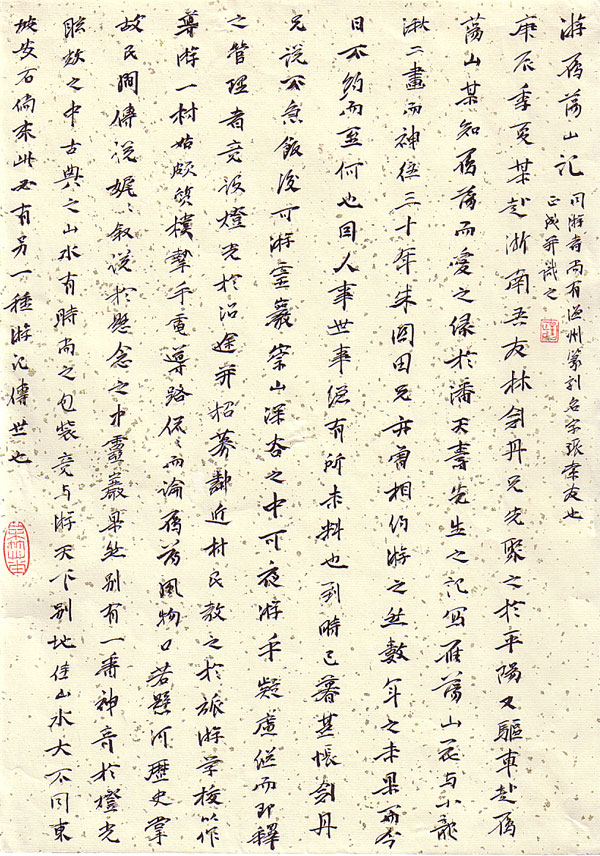 游雁荡山记
同游者尚有温州篆刻名家张索友也
正成并识之
庚辰季夏某赴浙南吾友林剑丹兄先聚之于平阳又驱车赴雁
荡山某知雁荡而爱之缘于潘天寿先生之记写雁荡山花与小龙
湫二画而神往三十年朱园田兄亦曾相约游之然数年之未果而今
日不约而至何也因人事世事总有所未料也到时已暮甚怅剑丹
兄说不急饭后可游灵岩崇山深谷之中可夜游乎疑虑从而即释
之管理者竟设灯光于沿途并招募就近村民教之于旅游学校以作
导游一村姑颇质朴挚手电导路侃侃而论雁荡风物口若悬河历史掌
故民间传说娓娓叙说于悬念之中灵岩果然别有一番神奇于灯光
眩然之中古典之山水有时尚之包装竟与游天下别地佳山水大不同东
坡安石倘来此必有另一种游记传世也